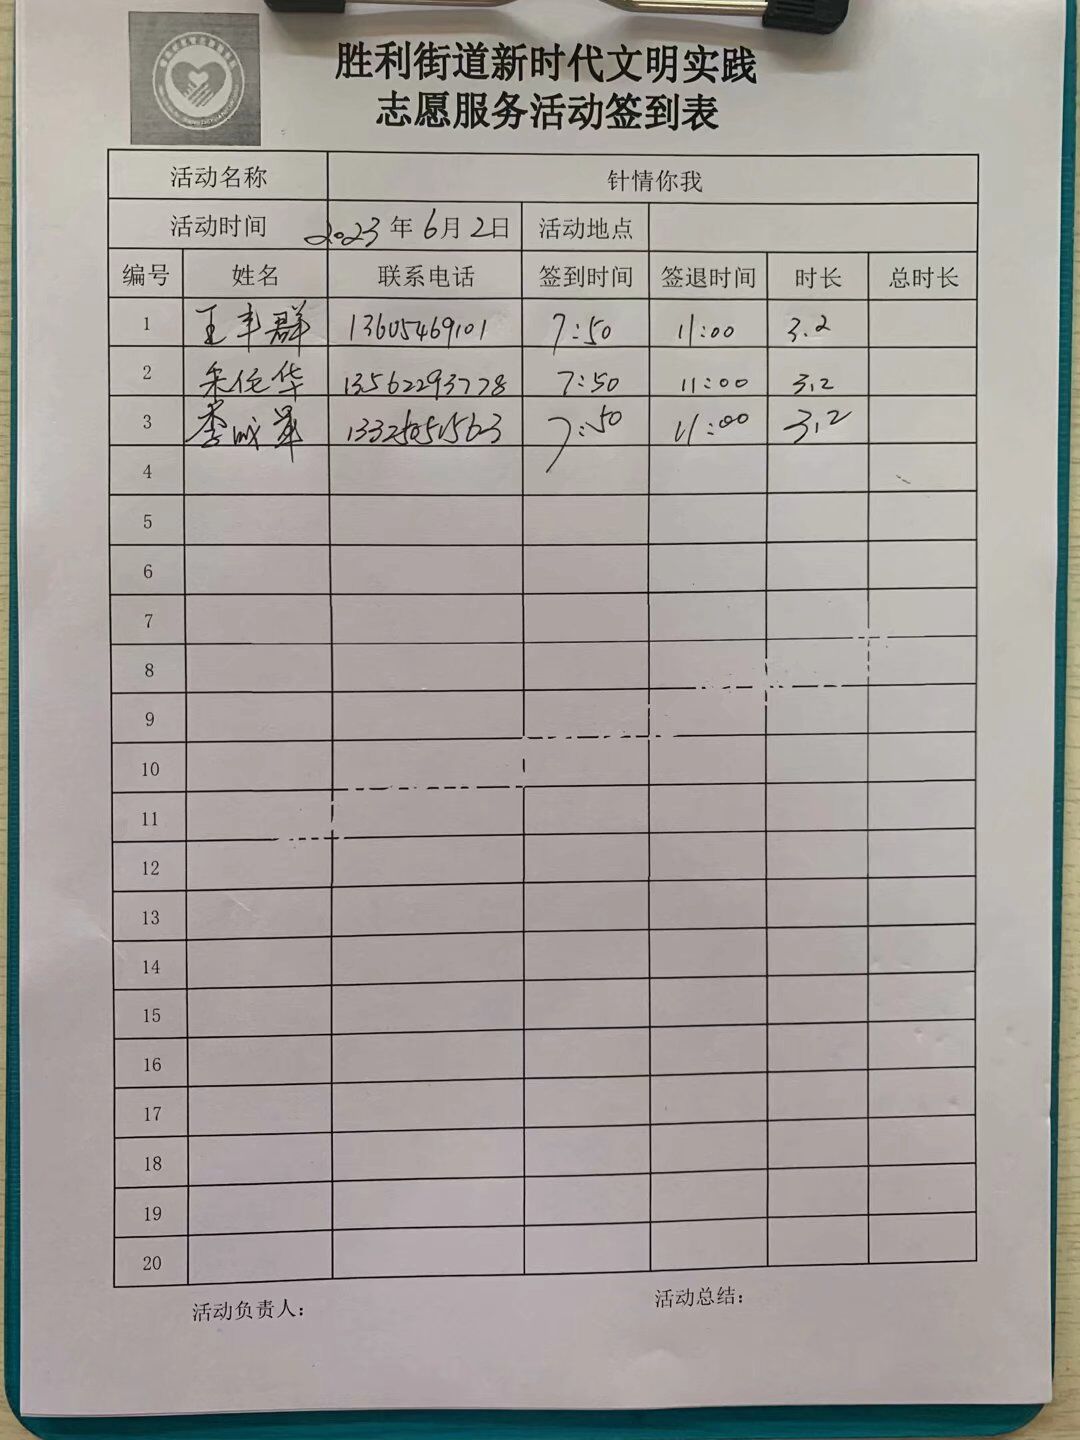 胜利街道新时代文明实践
志愿服务活动签到表
活动名称 针情你我
活动时间 2023年6月2日 活动地点
编号 姓名 联系电话 签到时间 签退时间 时长 总时长
1 王丰群 13605469101 7:50 11:00 3.2
2 朱任华 13562293778 7:50 11:00 3.2
3 李成军 7:50 11:00 3.2
4
5
6
7
8
9
10
11
12
13
14
15
16
17
18
19
20
活动负责人： 活动总结：